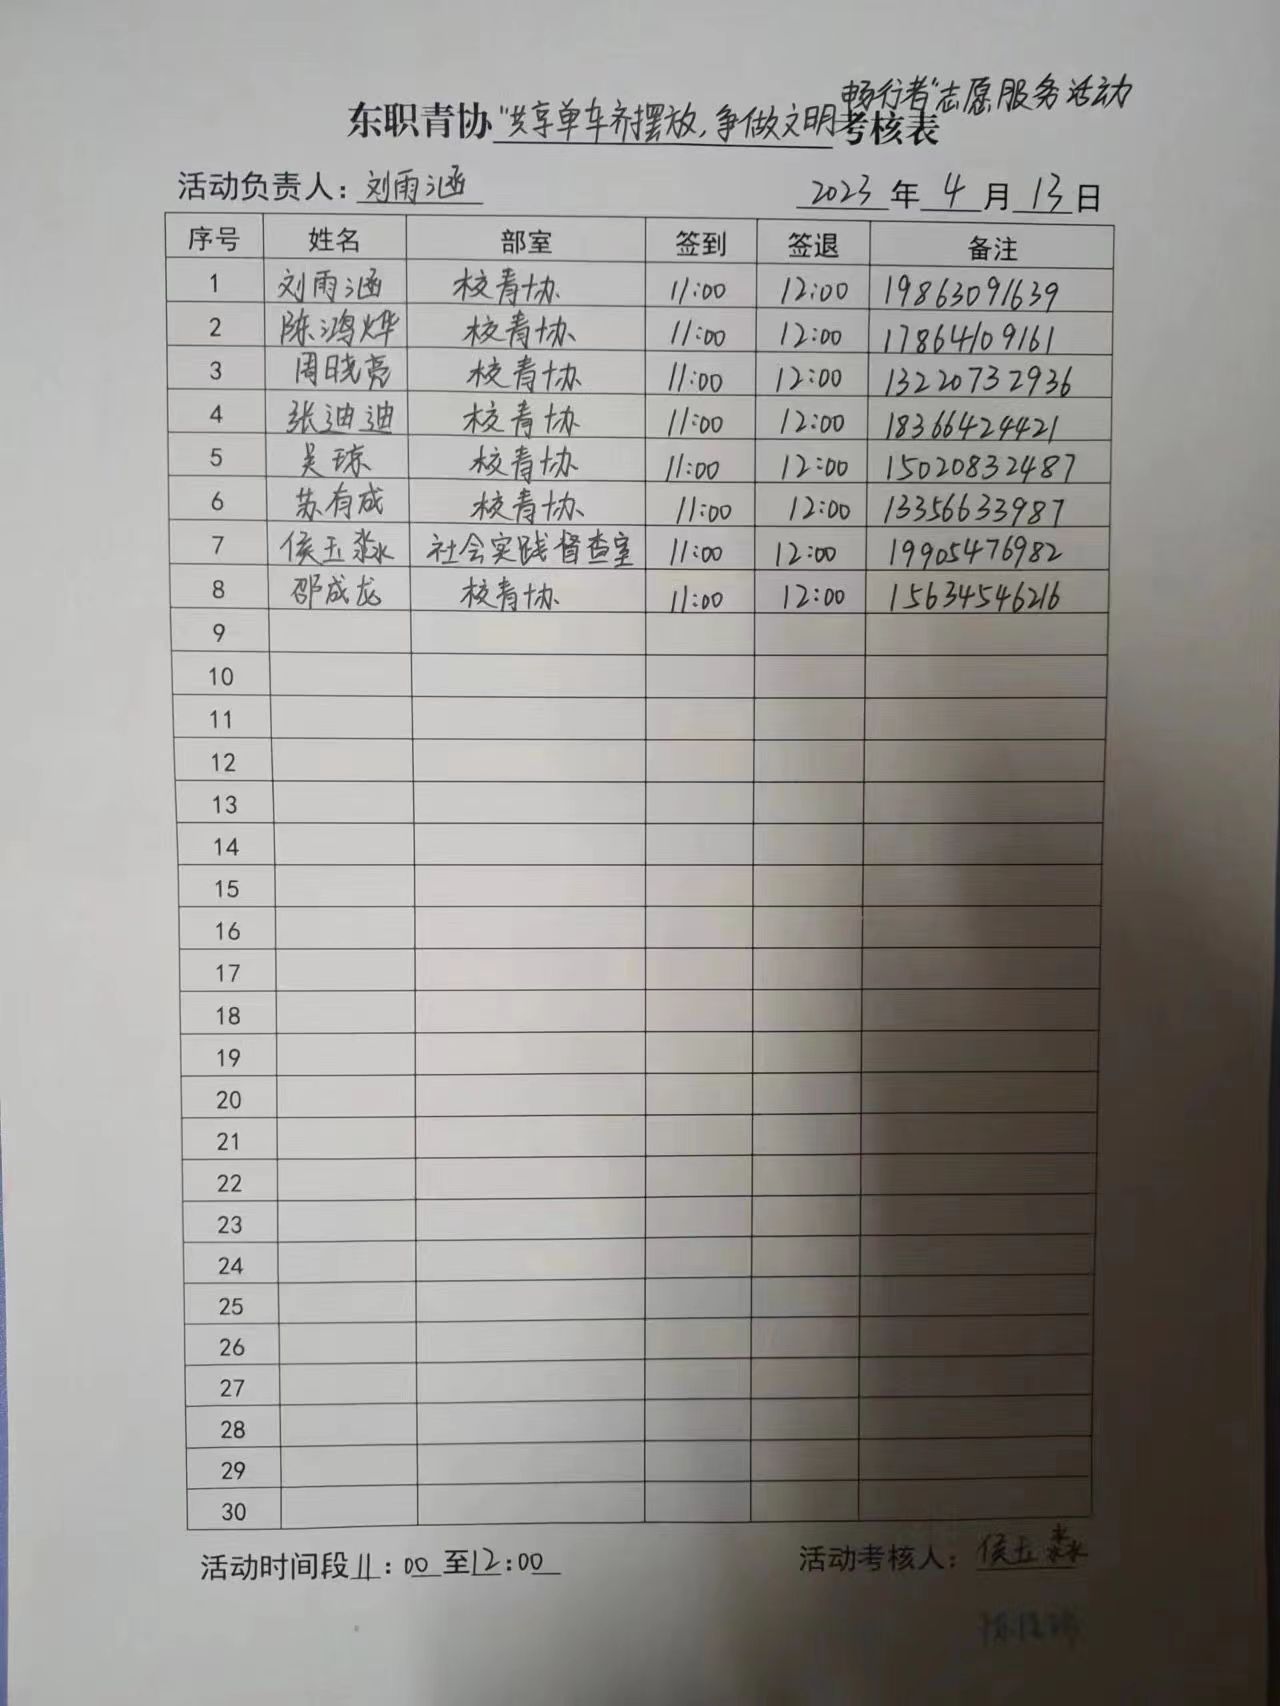 东职青协“共享单车齐摆放,争做文明畅行者”志愿服务活动考核表
活动负责人：刘雨涵 2023年4月13日
序号 姓名 部室 签到 签退 备注
1 刘雨涵 校青协 11:00 12:00 19863091639
2 陈鸿烨 校青协 11:00 12:00 17864109161
3 周晓亮 校青协 11:00 12:00 13220732936
4 张迪迪 校青协 11:00 12:00 18366424421
5 吴琼 校青协 11:00 12:00 15020832487
6 苏有成 校青协 11:00 12:00 13356633987
7 侯玉淼 社会实践督查室 11:00 12:00 19905476982
8 邵成龙 校青协 11:00 12:00 15634546216
9
10
11
12
13
14
15
16
17
18
19
20
21
22
23
24
25
26
27
28
29
30
活动时间段11:00至12:00 活动考核人：侯玉淼